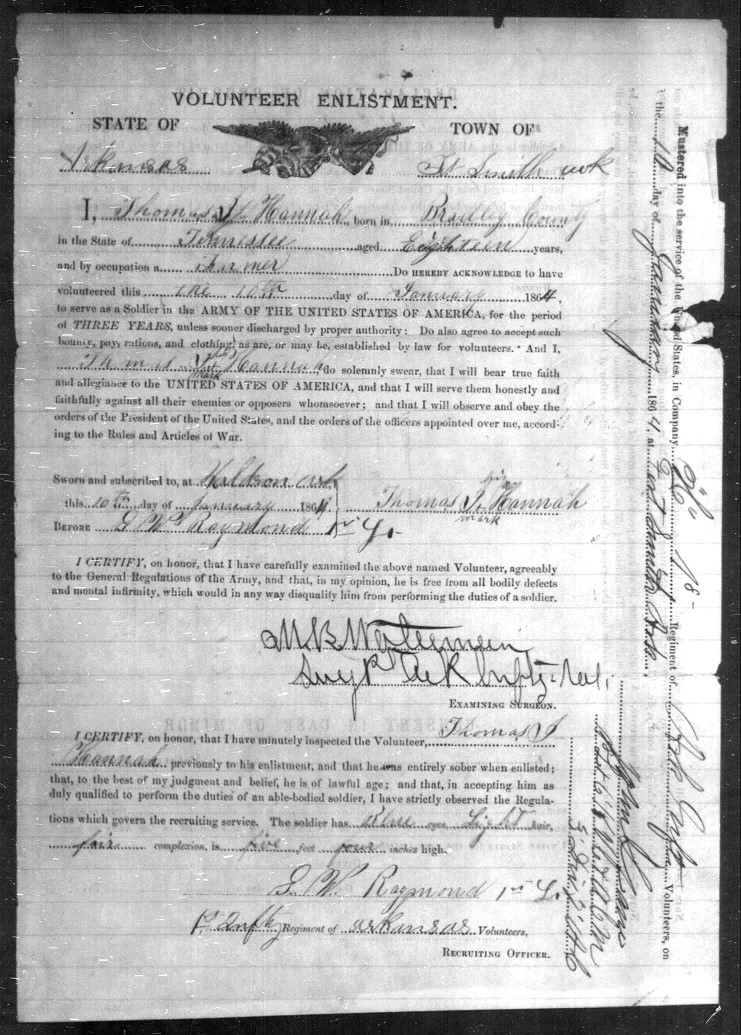 VOLUNTEER ENLISTMENT.
STATE OF TOWN OF
Arkansas Ft Smith Ark
I, Thomas J Hannah born in Bradley County
in the State of Tennessee aged Eighteen years,
and by occupation a Farmer Do HEREBY ACKNOWLEDGE to have
volunteered this the 10th day of January 1864,
to serve as a Soldier in the ARMY OF THE UNITED STATES OF AMERICA, for the period
of THREE YEARS, unless sooner discharged by proper authority: Do also agree to accept such
bounty, pay, rations, and clothing, as are, or may be, established by law for volunteers. And I,
Thomas J Hannah, do solemnly swear, that I will bear true faith
and allegiance to the UNITED STATES OF AMERICA, and that I will serve them honestly and
faithfully against all their enemies or opposers whomsoever; and that I will observe and obey the
orders of the President of the United States, and the orders of the officers appointed over me, accord-
ing to the Rules and Articles of War.
Sworn and subscribed to, at Ark
this 10th day of January 1864
his
Thomas J. Hannah
mark
BEFORE G W Raymond 1st Lt.
I CERTIFY, on honor, that I have carefully examined the above named Volunteer, agreeably
to the General Regulations of the Army, and that, in my opinion, he is free from all bodily defects
and mental infirmity, which would in any way disqualify him from performing the duties of a soldier.
EXAMINING SURGEON.
I CERTIFY, on honor, that I have minutely inspected the Volunteer, Thomas J
Hannah previously to his enlistment, and that he was entirely sober when enlisted;
that, to the best of my judgment and belief, he is of lawful age; and that, in accepting him as
duly qualified to perform the duties of an able-bodied soldier, I have strictly observed the Regula-
tions which govern the recruiting service. The soldier has Blue eyes, Light hair,
fair complexion, is five feet four inches high.
G W. Raymond 1st Lt.
1st Infty Regiment of Arkansas Volunteers,
RECRUITING OFFICER.
Mustered into the service of the United States, in Company Regiment of Ark Inf Volunteers, on
the 10 day of January 1864, at Fort Smith Ark